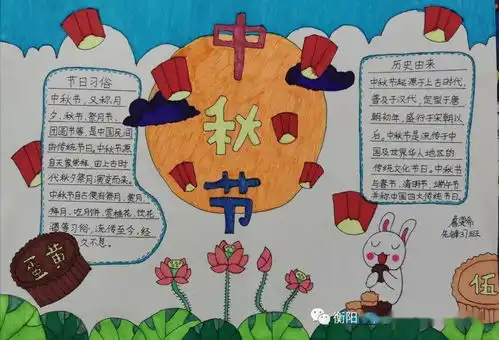 中
秋
节
节日习俗
中秋节，又称月
夕、秋节、祭月节、
团圆节等，是中国民间
的传统节日。中秋节源
自天象崇拜，由上古时
代秋夕祭月演变而来。
中秋节自古便有祭月、赏月、
拜月、吃月饼、赏桂花、饮花
酒等习俗，流传至今，经
久不息。
历史由来
中秋节起源于上古时代，
普及于汉代，定型于唐
朝初年，盛行于宋朝以
后。中秋节是流传于中
国及世界华人地区的
传统文化节日。中秋节
与春节、清明节、端午节
并称中国四大传统节日。
蛋黄
伍
衡阳